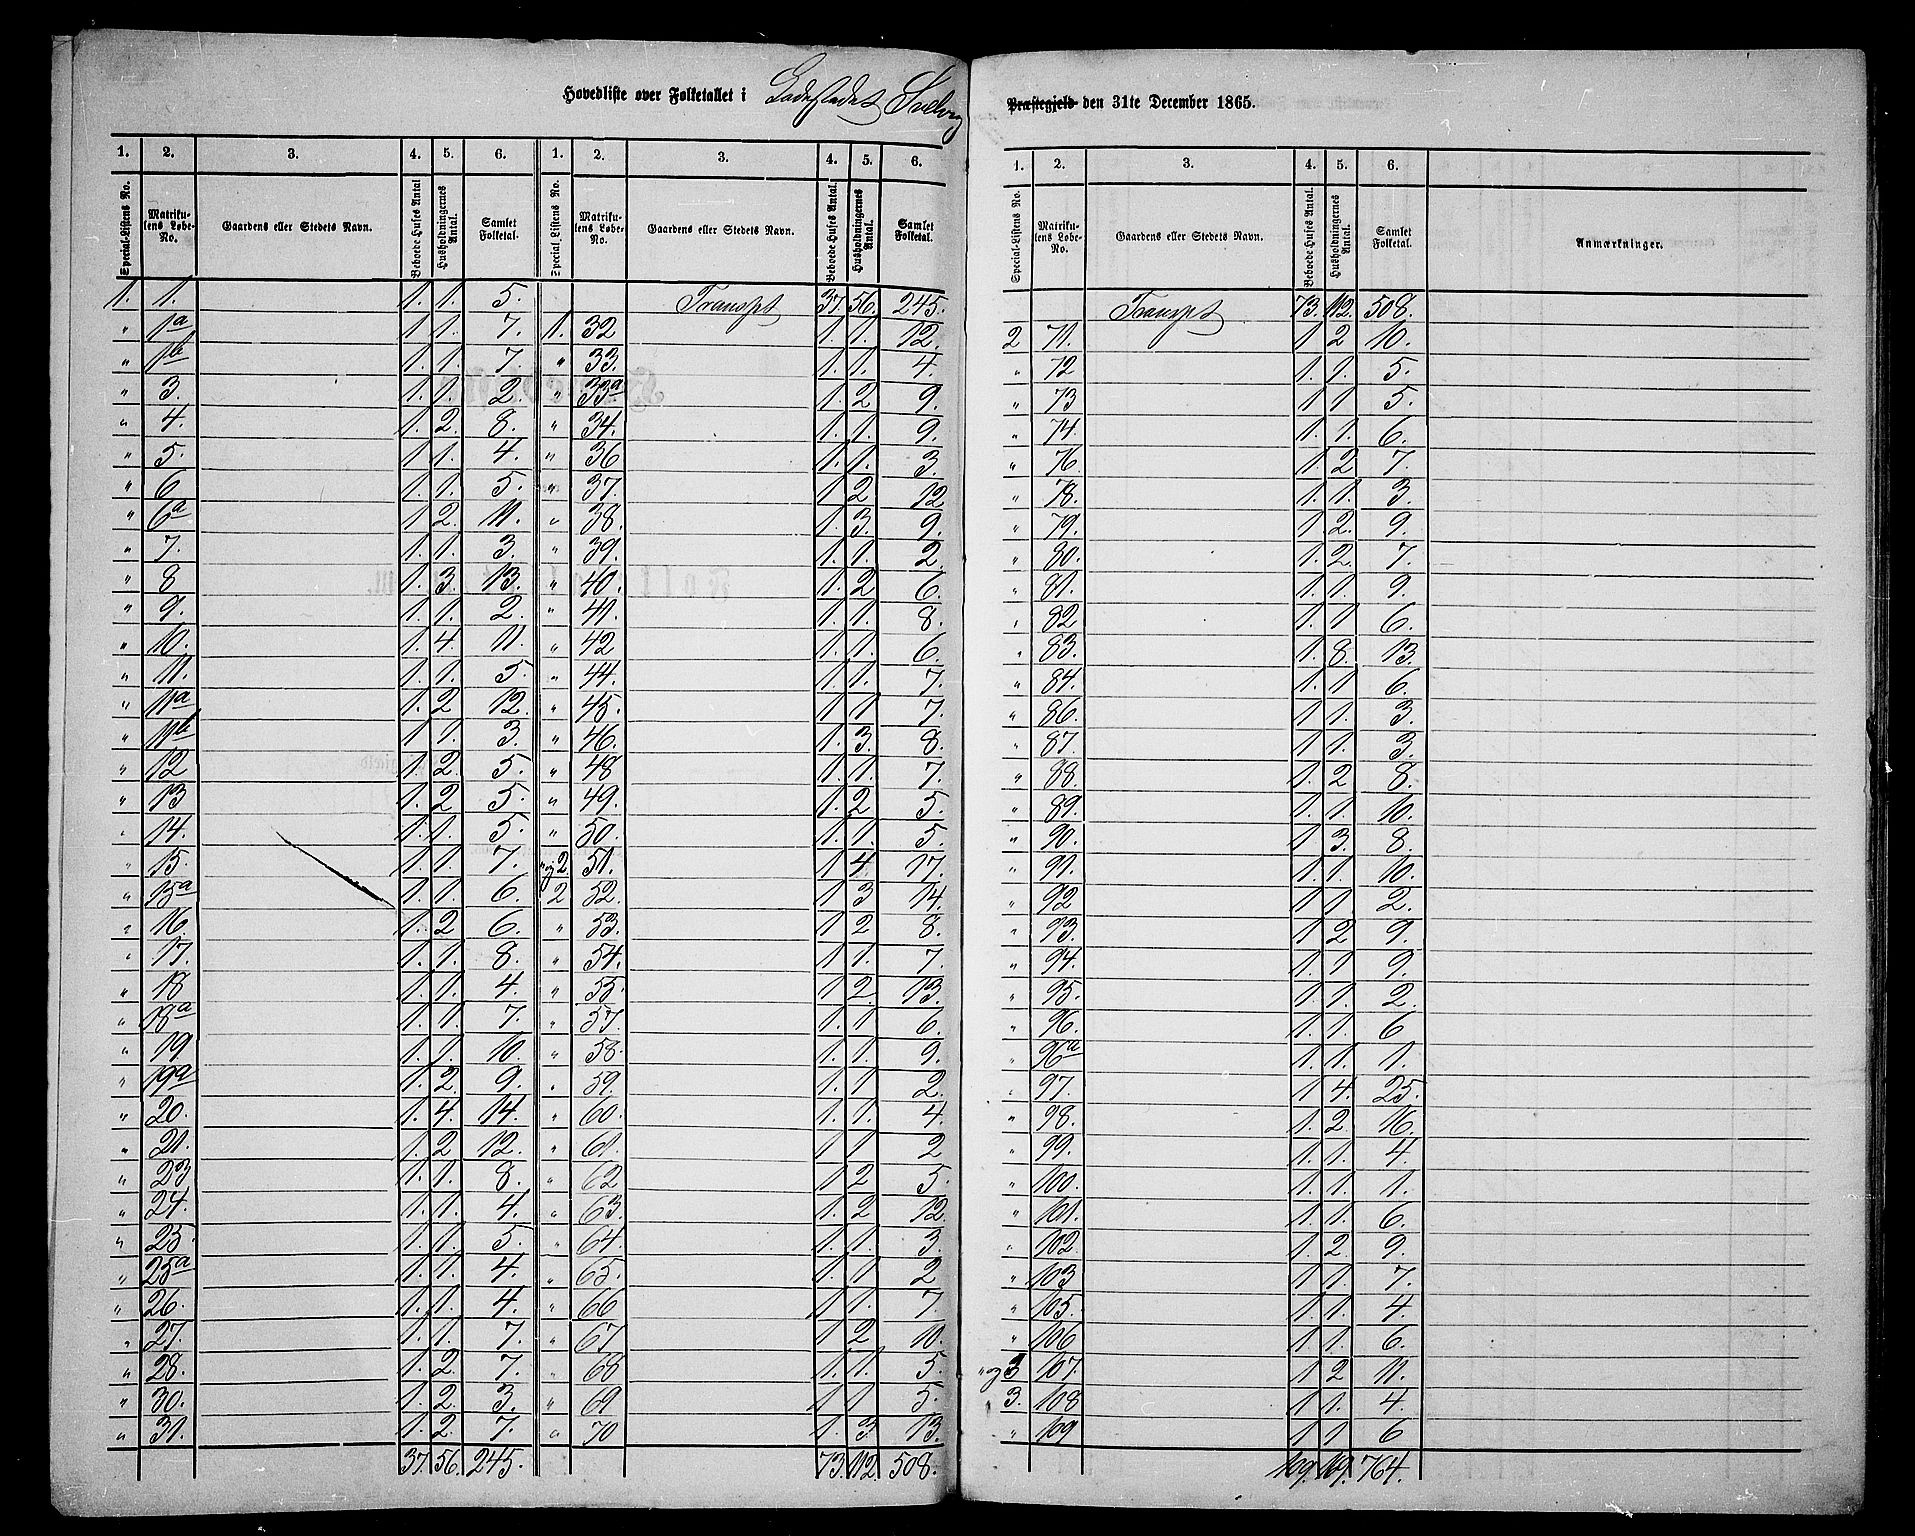 Hovedliste over Folketallet i Ladestedet Svelvig
Præstegjeld den 31te December 1865.
1. 2. 3. 4. 5. 6. 1. 2. 3. 4. 5. 6.
Special-Listens No. Matrikulens Løbe-No. Gaardens eller Stedets Navn. Beboede Huses Antal Husholdningernes Antal. Samlet Folketal. Special Listens No. Matrikulens Løbe-No. Gaardens eller Stedets Navn. Beboede Huses Antal. Husholdningernes Antal. Samlet Folketal.
1. 1. 1. 1. 5. Transpt 37. 56. 245.
" 1a 1. 1. 7. 1. 32 1. 1. 12.
" 1b 1. 1. 7. " 33. 1. 1. 4.
" 3. 1. 1. 2. " 33a 1. 2 9.
" 4. 1. 2. 8. " 34. 1. 1. 9.
" 5. 1. 1. 4. " 36 1. 1. 3.
" 6 1. 1. 5. " 37. 1. 2 12
" 6a 1. 2. 11. " 38. 1. 3. 9.
" 7. 1. 1. 3. " 39. 1. 1. 2.
" 8 1. 3. 13. " 40. 1. 2 6.
" 9. 1. 1. 2. " 41. 1. 1. 8.
" 10. 1. 4. 11. " 42 1. 1. 6.
" 11. 1. 1. 5. " 44. 1. 1. 7.
" 11a 1. 2 12. " 45. 1 1 7.
" 11b 1. 1. 3. " 46. 1. 3. 8.
" 12 1. 2. 5. " 48 1. 1. 7.
" 13 1. 2 5. " 49. 1. 2 5.
" 14. 1. 1. 5. " 50. 1. 1. 5.
" 15. 1. 1. 7. " og 2. 51. 1 4 17.
" 15a 1. 1. 6. 2 52. 1 3 14.
" 16. 1. 2 6. " 53. 1 2 8.
" 17. 1. 1. 8. " 54. 1. 1. 7.
" 18 1. 1. 4. " 55. 1 2. 13.
" 18a 1. 1. 7. " 57. 1. 1 6.
" 19. 1. 1. 10. " 58. 1. 1. 9.
" 19a 1. 2. 9. " 59. 1. 1 2.
" 20. 1. 4. 14. " 60. 1. 1. 4.
" 21. 1. 2 12. " 61. 1 1 2
" 23 1. 1. 8. " 62 1 2 5.
" 24. 1. 1. 4. " 63. 1. 2 12.
" 25. 1. 1. 5. " 64. 1. 1. 3.
" 25a 1. 1. 4. " 65. 1. 1 2
" 26. 1. 1. 4. " 66 1 1. 7.
" 27. 1. 1. 7. " 67 1 2 10.
" 28. 1. 2. 7. " 68 1. 1. 5.
" 30. 1. 2. 3. " 69 1 1 5.
" 31. 1. 2. 7. " 70 1. 3 13.
37. 56. 245. 73. 112 508.
1. 2. 3. 4. 5. 6.
Special-Listens No. Matrikulens Løbe-No. Gaardens eller Stedets Navn. Beboede Huses Antal. Husholdningernes Antal. Samlet Folketal. Anmærkninger.
Transpt 73. 112. 508.
2 71. 1 2 10.
" 72 1. 1. 5.
" 73 1 1 5.
" 74. 1. 1. 6.
" 76. 1. 2 7.
" 78. 1. 1. 3.
" 79. 1 2. 9.
" 80. 1. 2. 7.
" 81. 1. 1. 9.
" 82 1. 1. 6.
" 83. 1. 8. 13.
" 84. 1. 1 6.
" 86. 1 1. 3.
" 87. 1 1. 3.
" 88. 1 2 8.
" 89. 1. 1. 10.
" 90. 1 3. 8.
" 91. 1. 1. 10.
" 92 1 1 2.
" 93. 1 2 9.
" 94. 1. 1 9.
" 95. 1 1. 2.
" 96. 1. 1 6
" 96a 1. 1. 1.
" 97. 1 4. 25.
" 98. 1. 2. 16.
" 99. 1. 1. 4.
" 100. 1. 1. 1.
" 101. 1. 1. 6.
" 102. 1. 2. 9.
" 103 1 1. 7.
" 105. 1 1. 4.
" 106 1 1. 6.
" og 3 107. 1 2 11.
3. 108 1 1. 4.
" 109 1 1 6
109. 169. 764.